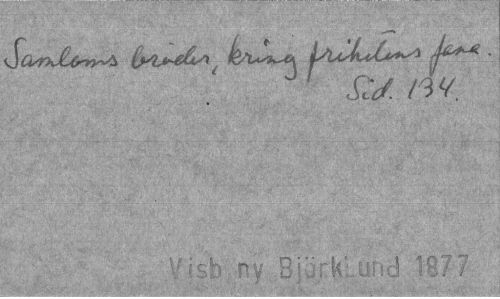 Samloms bröder, kring frihetens fana.
Sid. 134.
Visb ny Björklund 1877